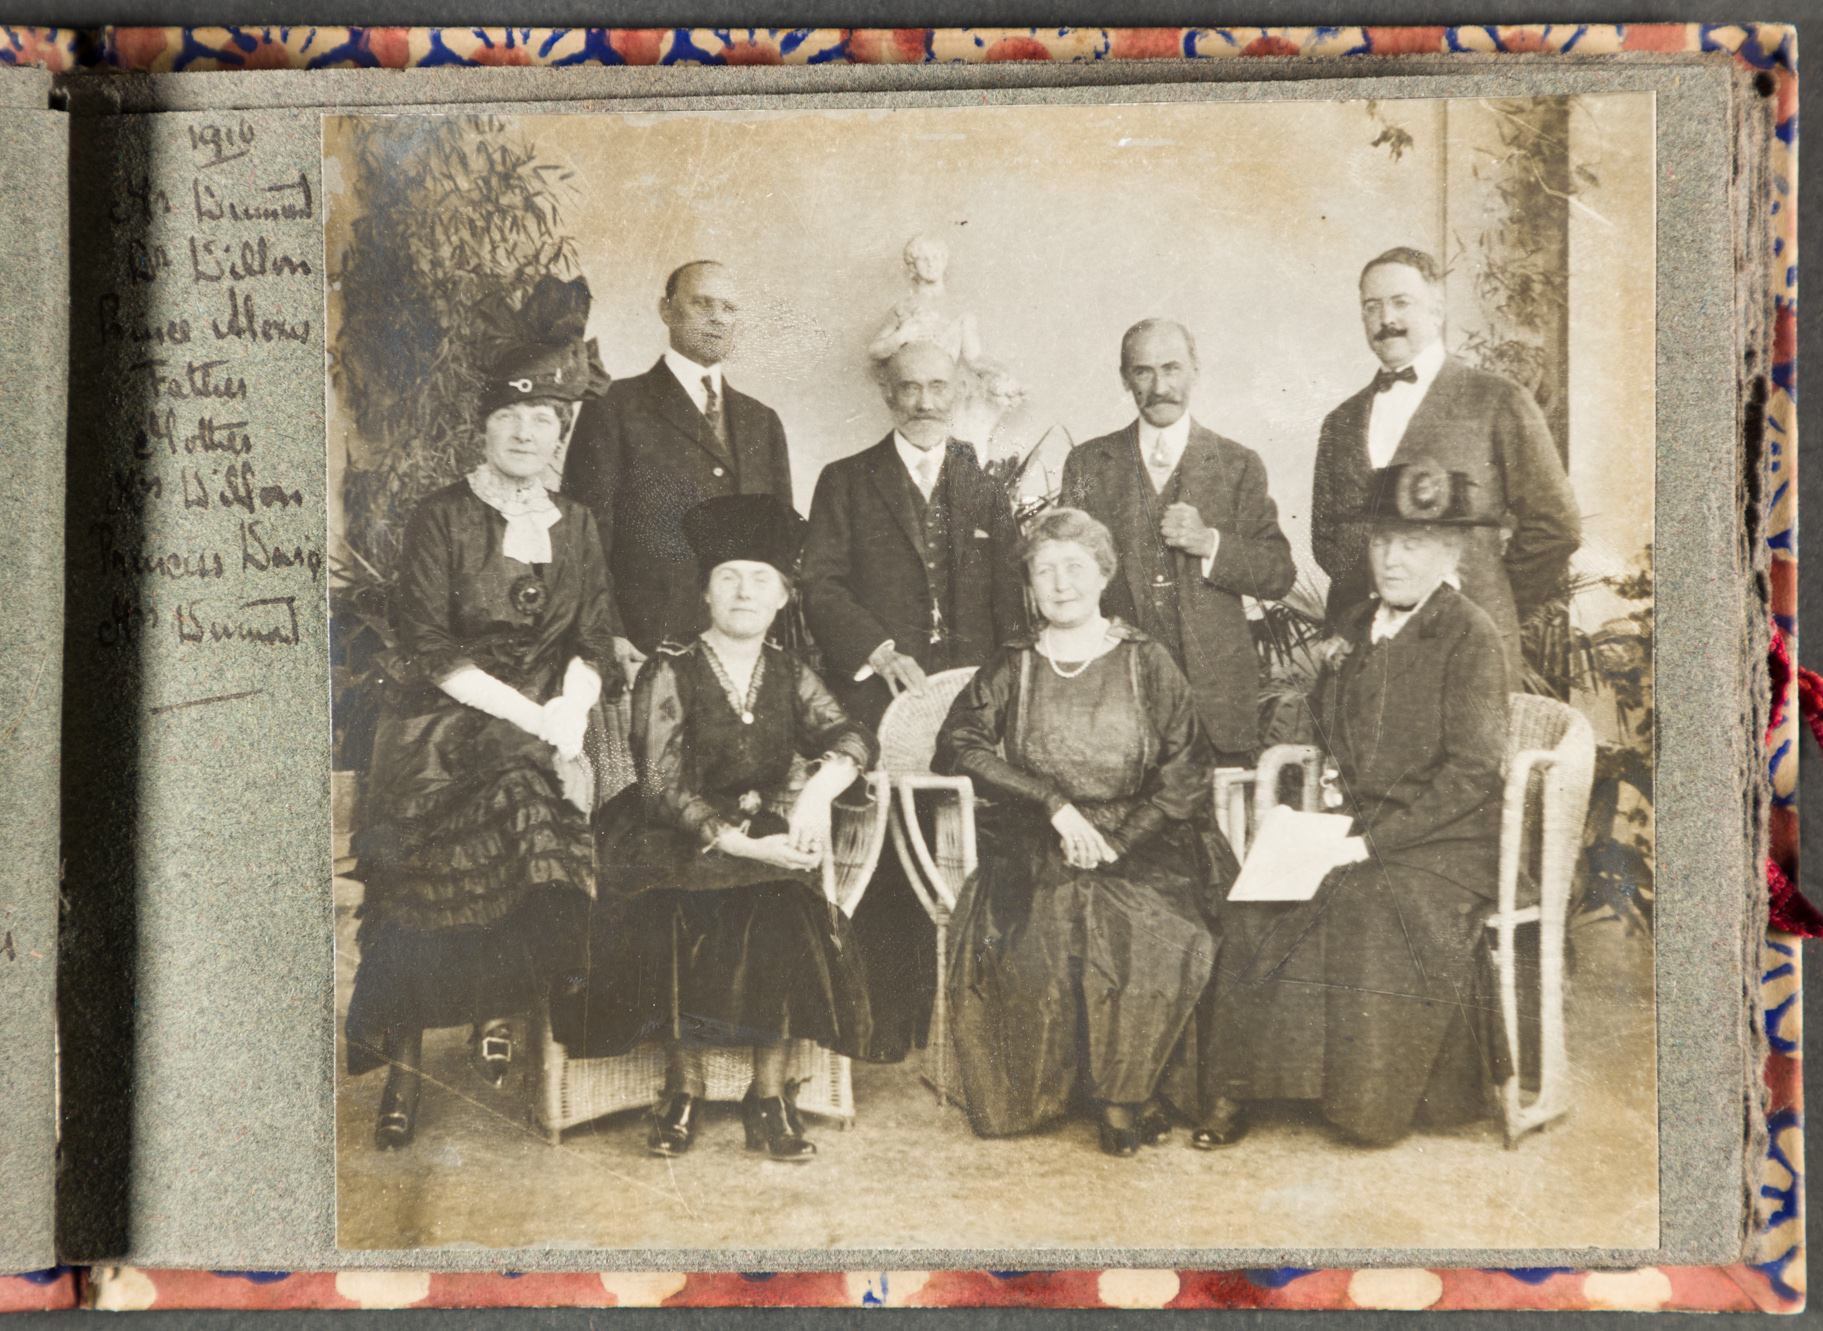 1916
Mr Dumont
Dr Dillon
Prince Alexis
Father
Mother
Mrs Dillon
Princess
Mrs Dumont